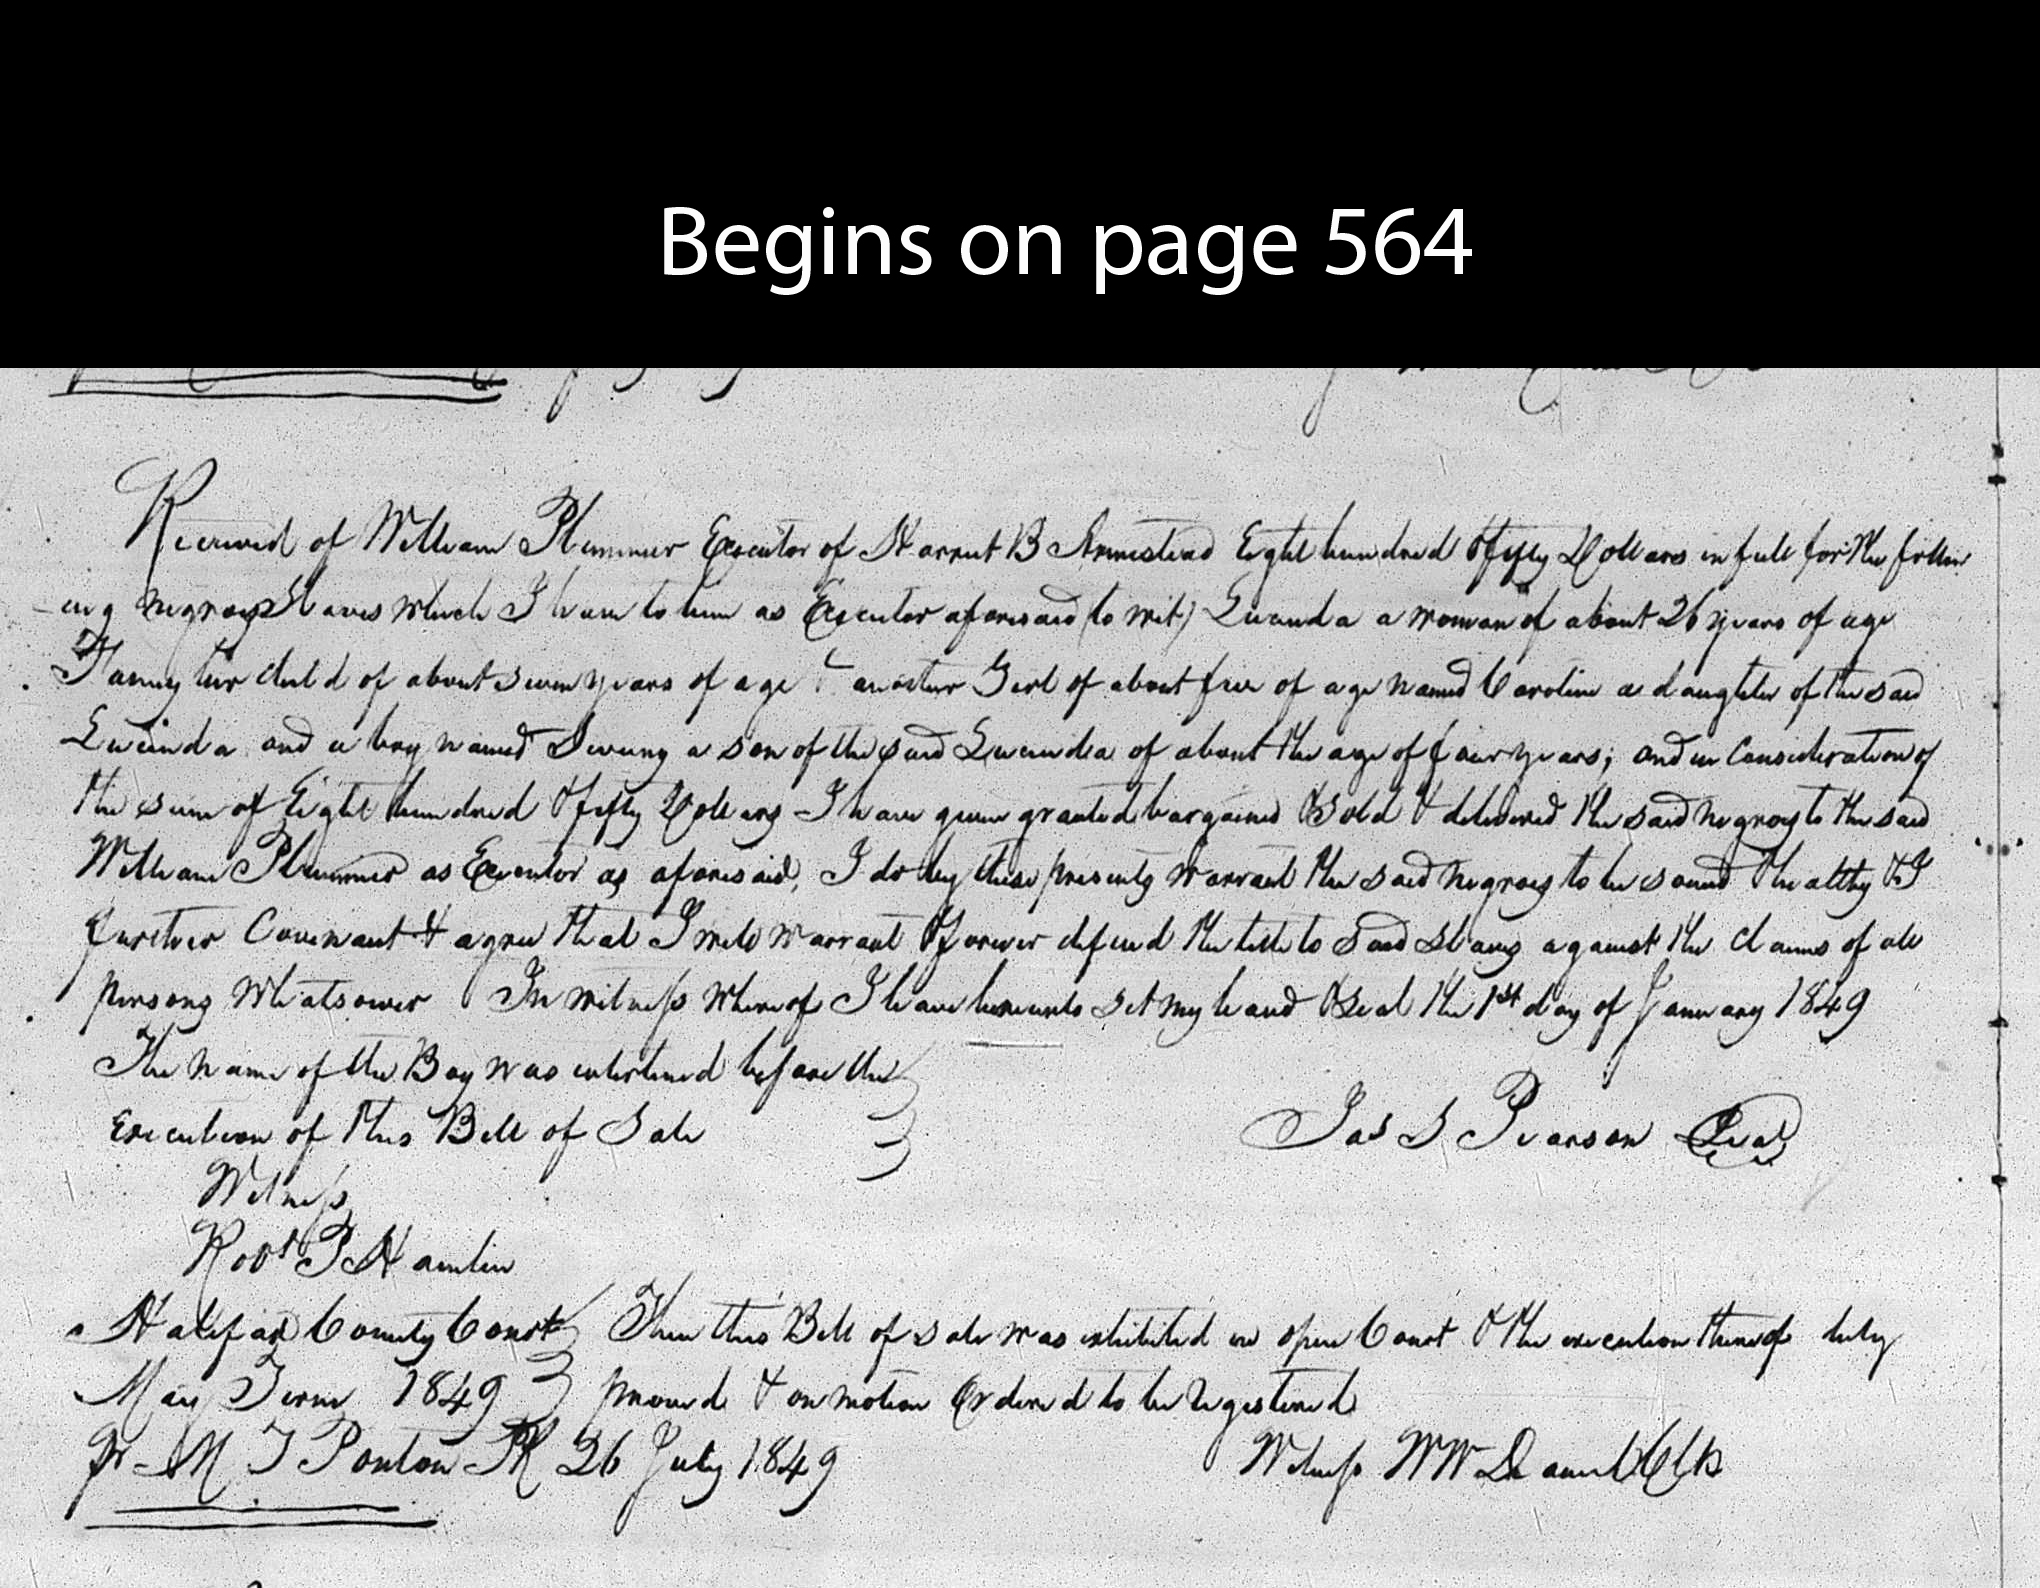 Begins on page 564
Received of William Plummer Executor of Harriet B Armistead Eight hundred & fifty Dollars in full for the follow
-ing negroes Slaves which I have to him as Executor aforesaid (to wit) Lucinda a woman of about 26 years of age
Fanny her child of about seven years of age & another Girl of about five of age named Caroline a daughter of the said
Lucinda and a boy named a son of the said Lucinda of about the age of four years; and in consideration of
the sum of Eight hundred & fifty Dollars I have given granted bargained & sold & delivered the said negroes to the said
William Plummer as Executor as aforesaid, I do by these presents warrant the said negroes to be sound & healthy & I
further Covenant & agree that I will warrant & forever defend the title to said slaves against the claims of all
persons whatsoever In witness whereof I have hereunto set my hand & seal this 1st day of January 1849
The name of the Boy was interlined before the
Execution of this Bill of Sale
Jas S Pearson Seal
Witness
Robt P Hamlin
Halifax County Court } Then this Bill of sale was exhibited in open Court & the execution thereof duly
May Term 1849 } proved & on motion Ordered to be registered
Pr M T Ponton PR 26 July 1849
Witness WW Daniel Clk